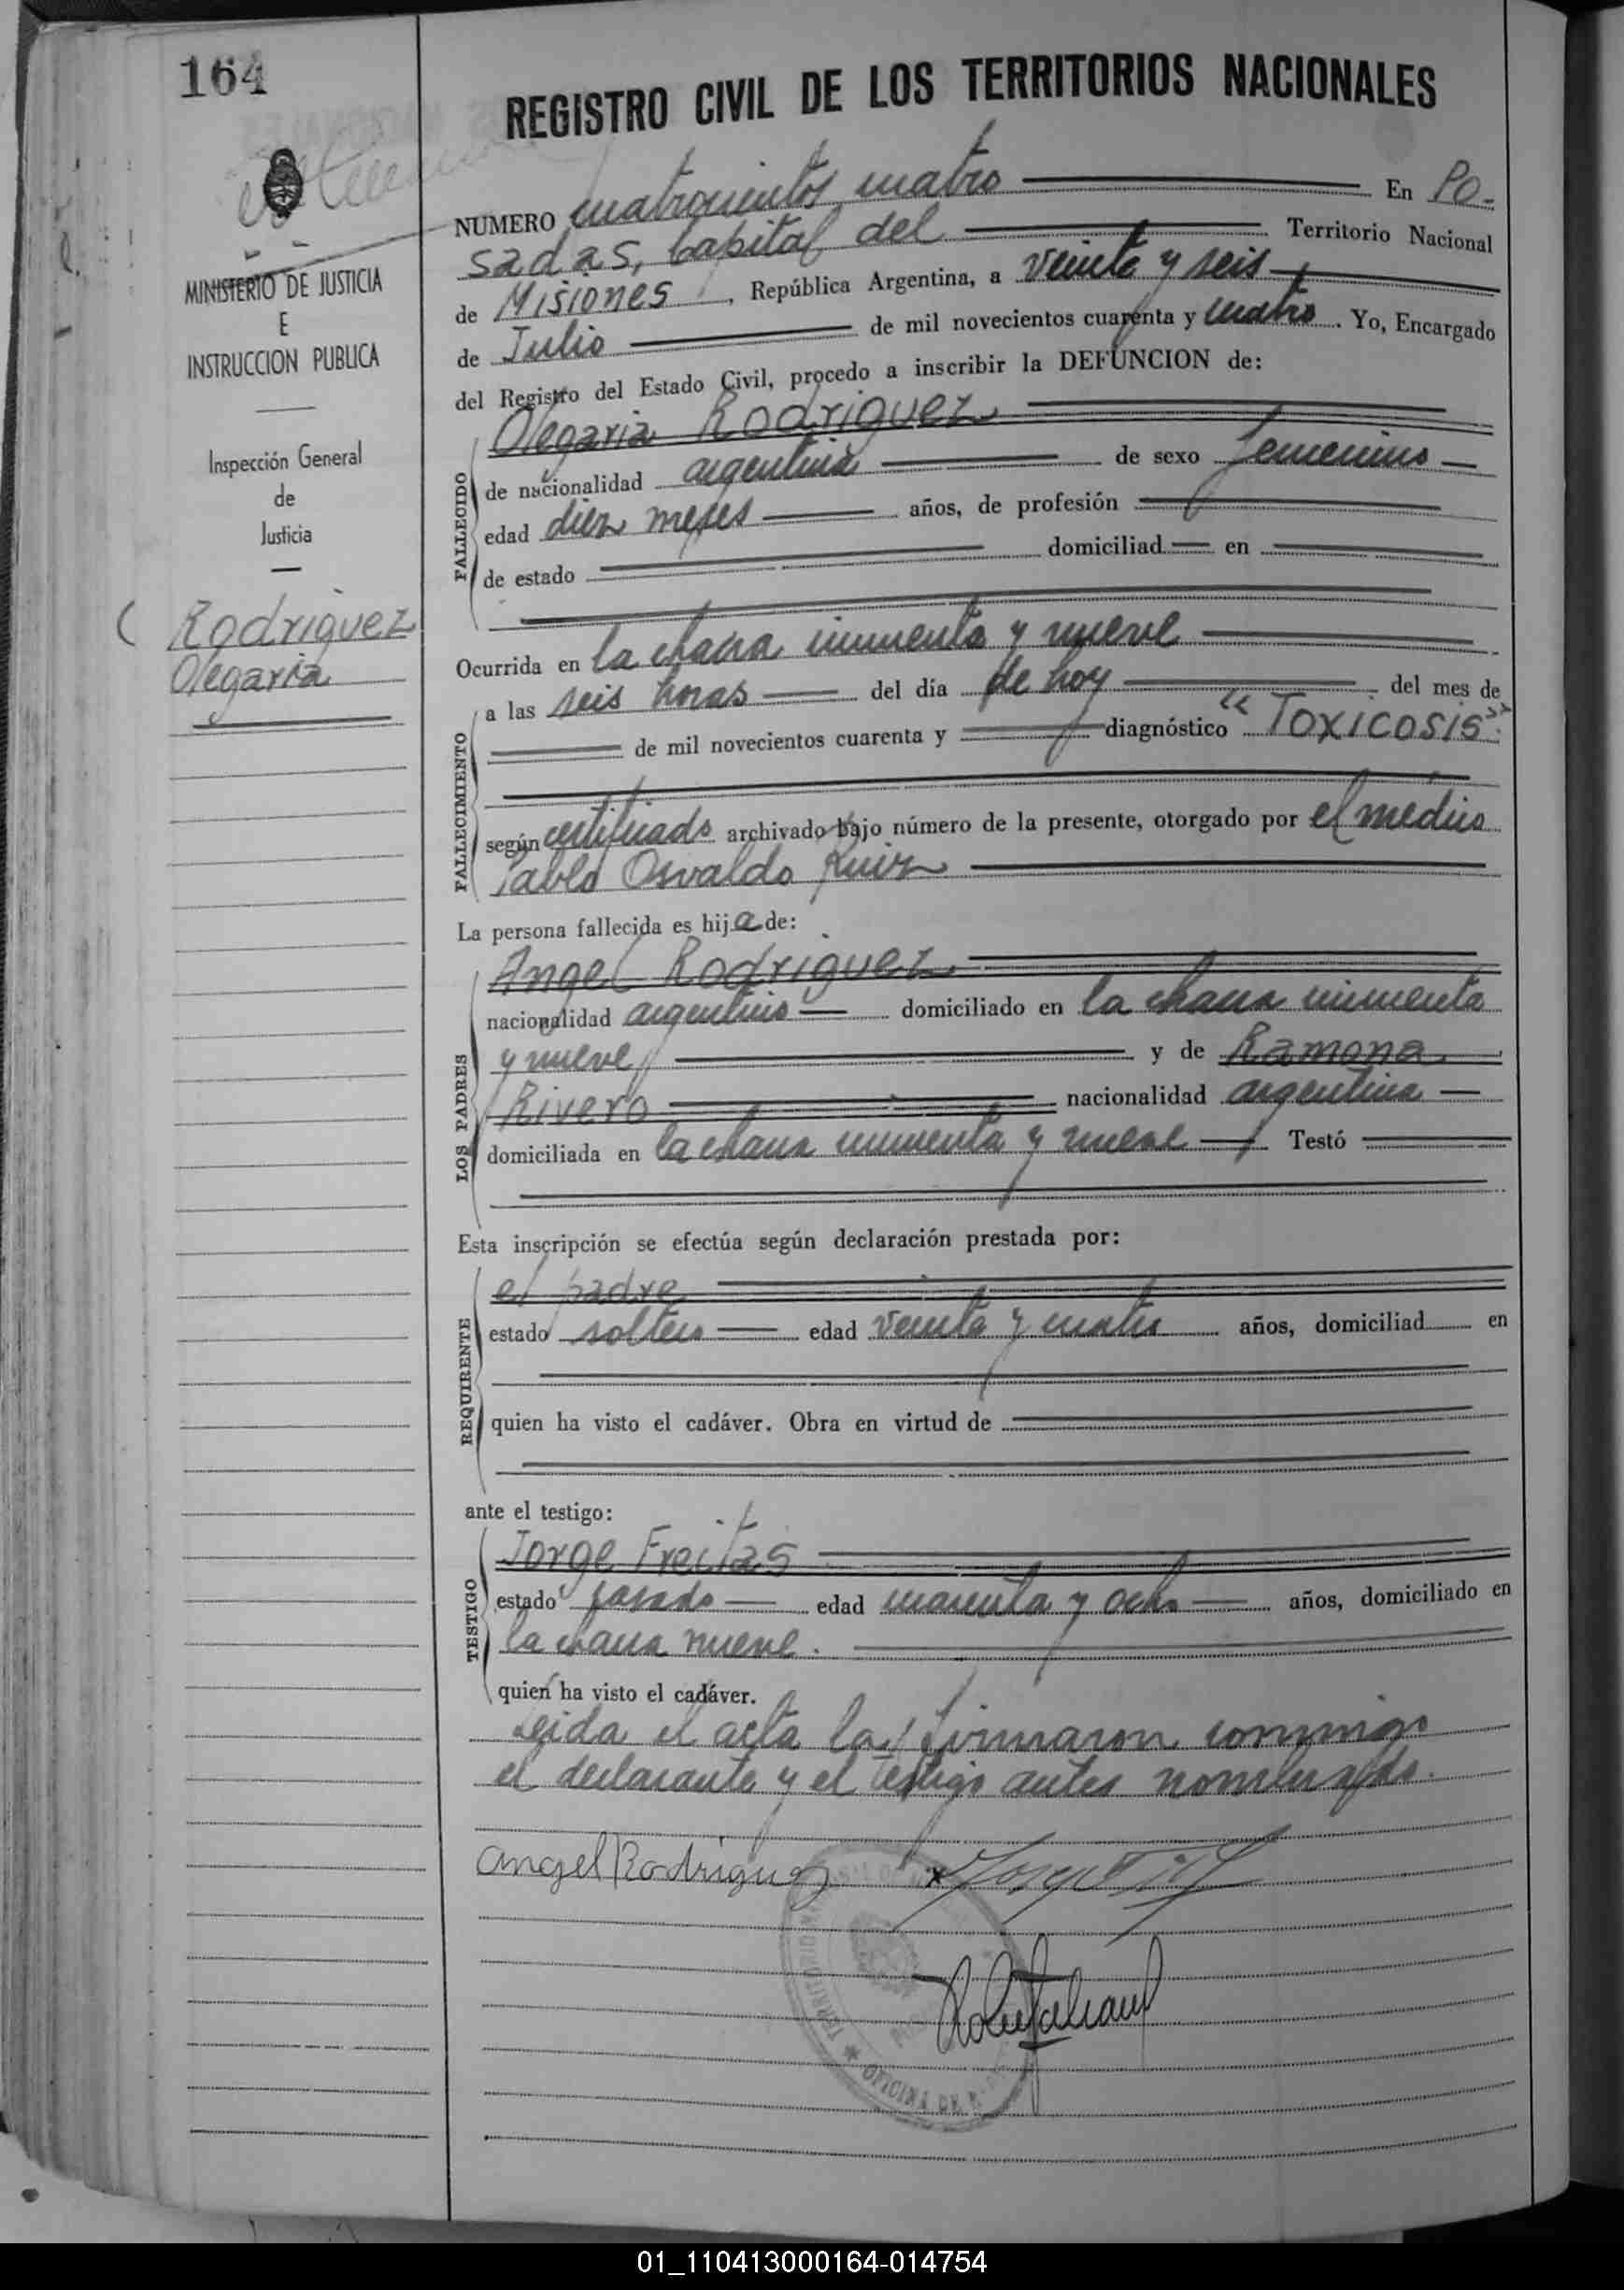 164
REGISTRO CIVIL DE LOS TERRITORIOS NACIONALES
MINISTERIO DE JUSTICIA
E
INSTRUCCION PUBLICA
Inspección General
de
Justicia
Rodriguez
Olegaria
NUMERO cuatrocientos cuatro En Po-
sadas, Capital del Territorio Nacional
de Misiones, República Argentina, a veinte y seis
de Julio de mil novecientos cuarenta y cuatro. Yo, Encargado
del Registro del Estado Civil, procedo a inscribir la DEFUNCION de:
FALLECIDO
Olegaria Rodriguez
de nacionalidad argentina de sexo femenino
edad diez meses años, de profesión
de estado domiciliad en
Ocurrida en la chacra cincuenta y nueve
FALLECIMIENTO
a las seis horas del día de hoy del mes de
de mil novecientos cuarenta y diagnóstico "Toxicosis".
según certificado archivado bajo número de la presente, otorgado por el médico
Pablo Osvaldo Ruiz
La persona fallecida es hija de:
LOS PADRES
Angel Rodriguez
nacionalidad argentino domiciliado en la chacra cincuenta
y nueve y de Ramona
Rivero nacionalidad argentina
domiciliada en la chacra cincuenta y nueve Testó
Esta inscripción se efectúa según declaración prestada por:
REQUIRENTE
el padre
estado soltero edad veinte y cuatro años, domiciliad en
quien ha visto el cadáver. Obra en virtud de
ante el testigo:
TESTIGO
Jorge Freitas
estado casado edad cuarenta y ocho años, domiciliado en
la chacra nueve.
quien ha visto el cadáver.
Leida el acta la firmaron conmigo
el declarante y el testigo antes nombrado.
Angel Rodriguez
01_110413000164-014754